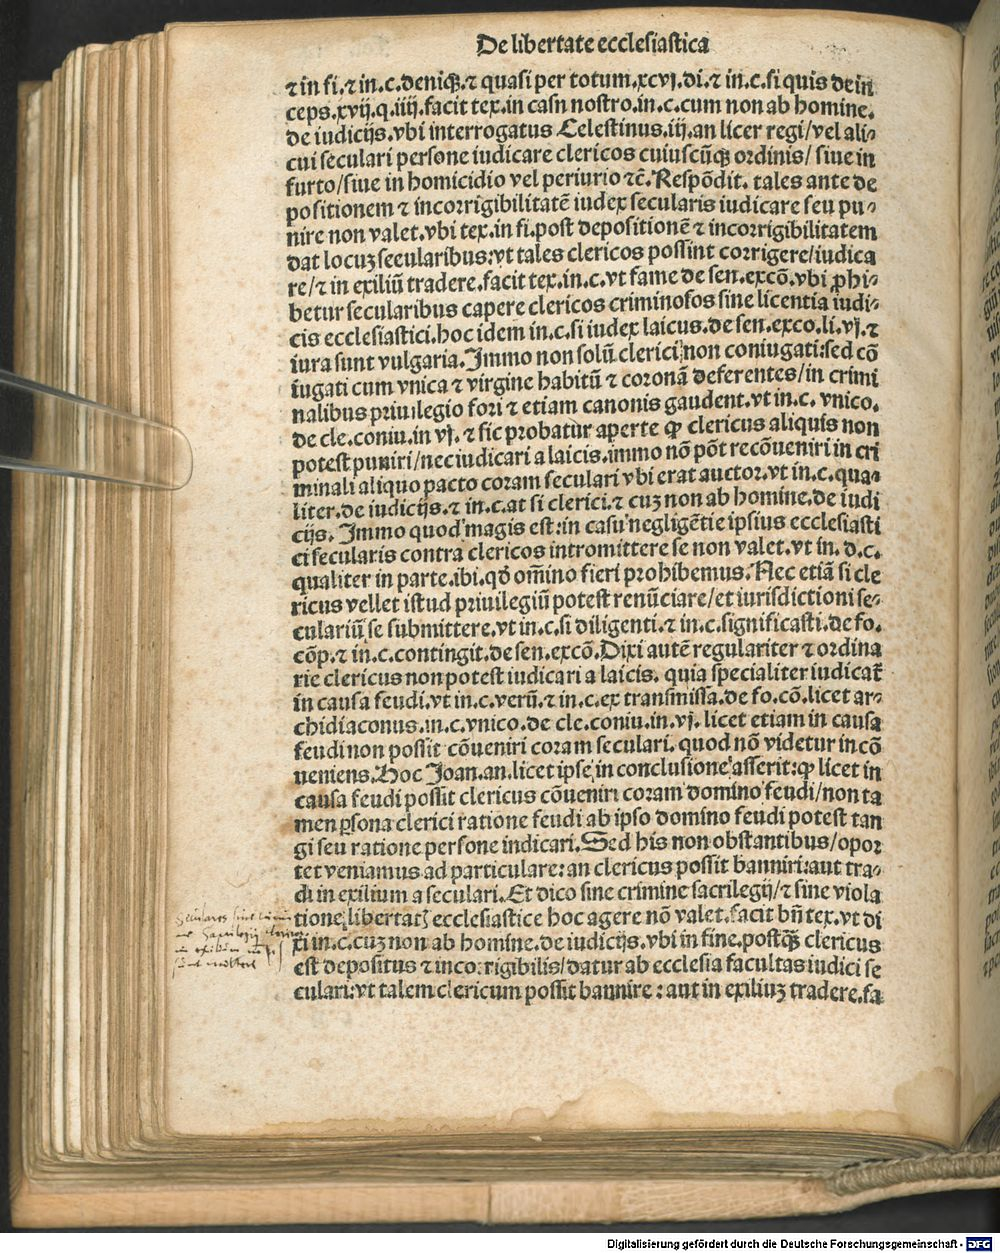 De libertate ecclesiastica
⁊ in fi.⁊ in.c.deniqꝫ.⁊ quasi per totum.xcvj.di.⁊ in.c.si quis dein
ceps.xvij.q.iiij.facit tex.in casu nostro.in.c.cum non ab homine.
de iudicijs.vbi interrogatus Celestinus.iij.an licer regi/vel ali⸗
cui seculari persone iudicare clericos cuiuscūqꝫ ordinis/ siue in
furto/siue in homicidio vel periurio ⁊c̄.Respōdit. tales ante de
positionem ⁊ incorrigibilitatē iudex secularis iudicare seu pu⸗
nire non valet.vbi tex.in fi.post depositionē ⁊ incorrigibilitatem
dat locuꝫ secularibus:vt tales clericos possint corrigere/iudica
re/⁊ in exiliū tradere.facit tex.in.c.vt fame de sen.excō.vbi ꝓhi⸗
betur secularibus capere clericos criminosos sine licentia iudi⸗
cis ecclesiastici.hoc idem in.c.si iudex laicus.de sen.exco.li.vj.⁊
iura sunt vulgaria.Immo non solū clerici non coniugati:sed cō
iugati cum vnica ⁊ virgine habitū ⁊ coronā deferentes/in crimi
nalibus priuilegio fori ⁊ etiam canonis gaudent.vt in.c. vnico.
de cle.coniu.in vj. ⁊ sic probatur aperte ꝙ clericus aliquis non
potest puniri/nec iudicari a laicis.immo nō pōt recōueniri in cri
minali aliquo pacto coram seculari vbi erat auctor.vt in.c.qua⸗
liter.de iudicijs.⁊ in.c.at si clerici.⁊ cuꝫ non ab homine.de iudi
cijs. Immo quod magis est:in casu negligētie ipsius ecclesiasti
ci secularis contra clericos intromittere se non valet.vt in. d.c.
qualiter in parte.ibi.qd̄ om̄ino fieri prohibemus.Nec etiā si cle
ricus vellet istud priuilegiū potest renūciare/et iurisdictioni se⸗
culariū se submittere.vt in.c.si diligenti.⁊ in.c.significasti.de fo.
cōp.⁊ in.c.contingit.de sen.excō.Dixi autē regulariter ⁊ ordina
rie clericus non potest iudicari a laicis. quia specialiter iudicat̄
in causa feudi.vt in.c.verū.⁊ in.c.ex transmissa.de fo.cō.licet ar⸗
chidiaconus.in.c.vnico.de cle.coniu.in.vj. licet etiam in causa
feudi non possit cōueniri coram seculari. quod nō videtur incō
ueniens.Hoc Joan.an.licet ipse in conclusione asserit:ꝙ licet in
causa feudi possit clericus cōueniri coram domino feudi/non ta
men ꝑsona clerici ratione feudi ab ipso domino feudi potest tan
gi seu ratione persone indicari.Sed his non obstantibus/opor
tet veniamus ad particulare:an clericus possit banniri:aut tra⸗
di in exilium a seculari.Et dico sine crimine sacrilegij/⁊ sine viola
tione libertatꝭ ecclesiastice hoc agere nō valet.facit bn̄ tex.vt di
xi in.c.cuꝫ non ab homine.de iudicijs.vbi in fine.postqꝫ clericus
est depositus ⁊ incorrigibilis/datur ab ecclesia facultas iudici se
culari:vt talem clericum possit bannire : aut in exiliuꝫ tradere.fa
Digitalisierung gefördert durch die Deutsche Forschungsgemeinschaft - DFG